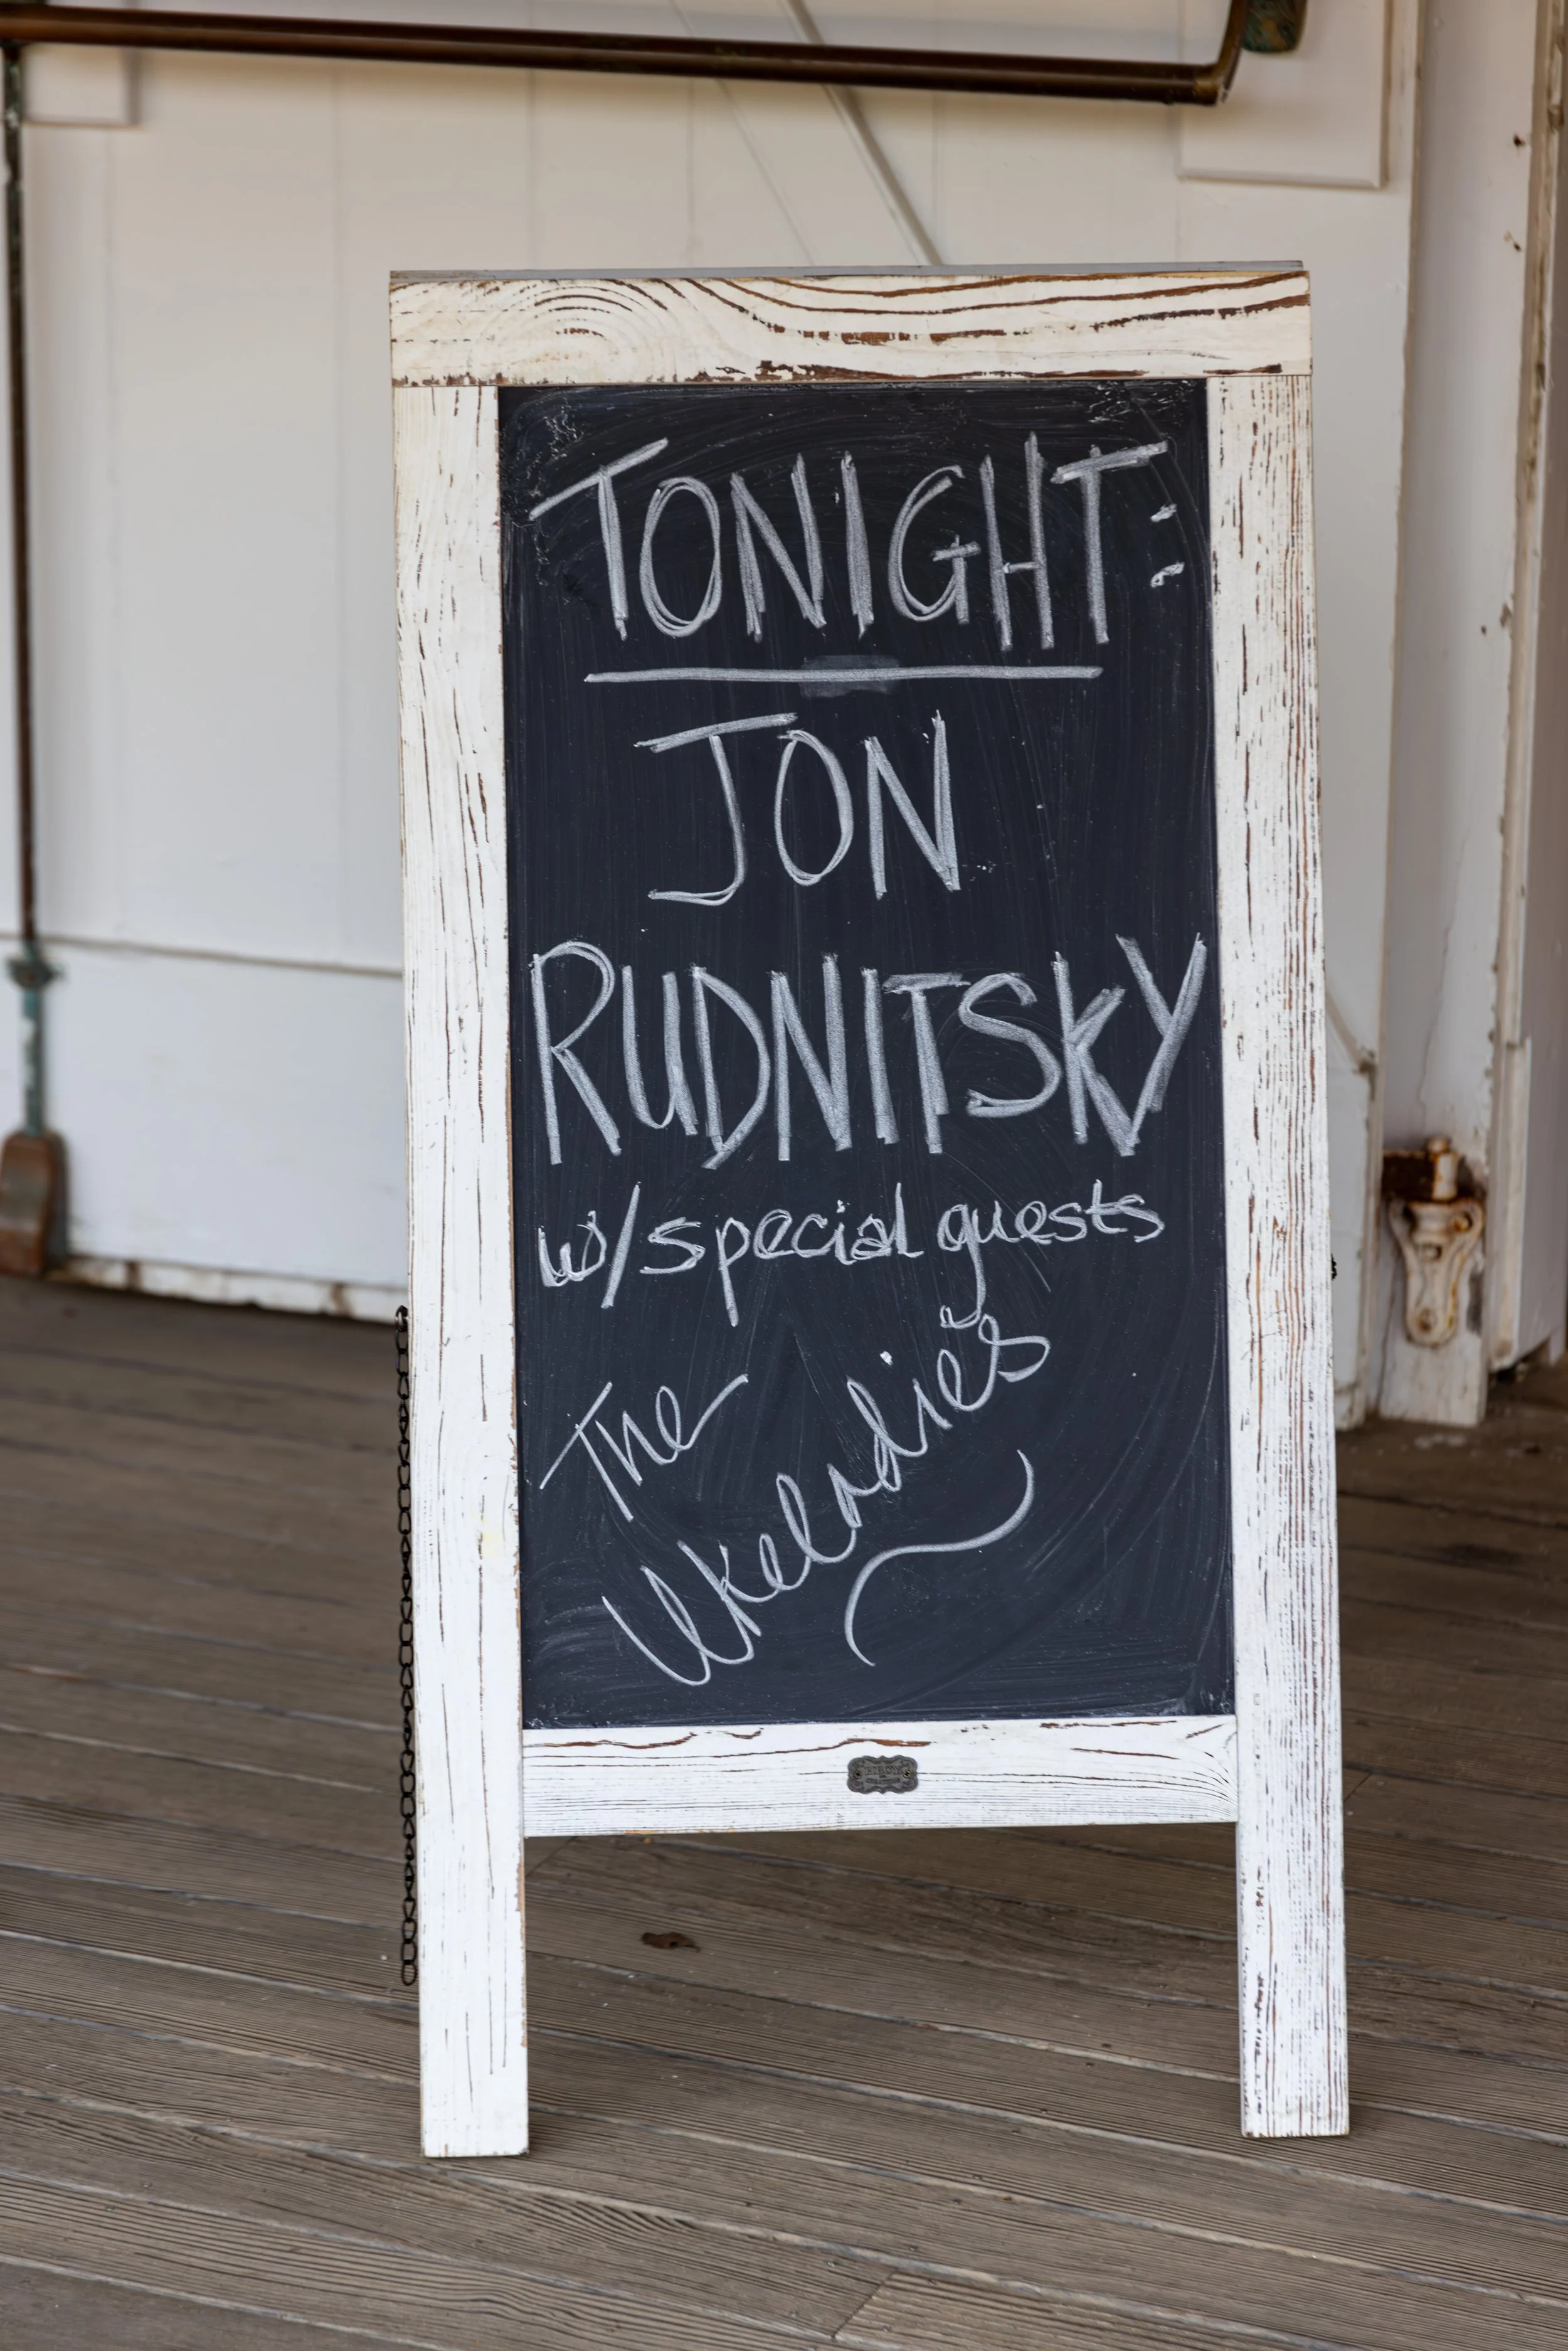 TONIGHT:
JON
RUDNITSKY
w/special guests
The
Ukeladies